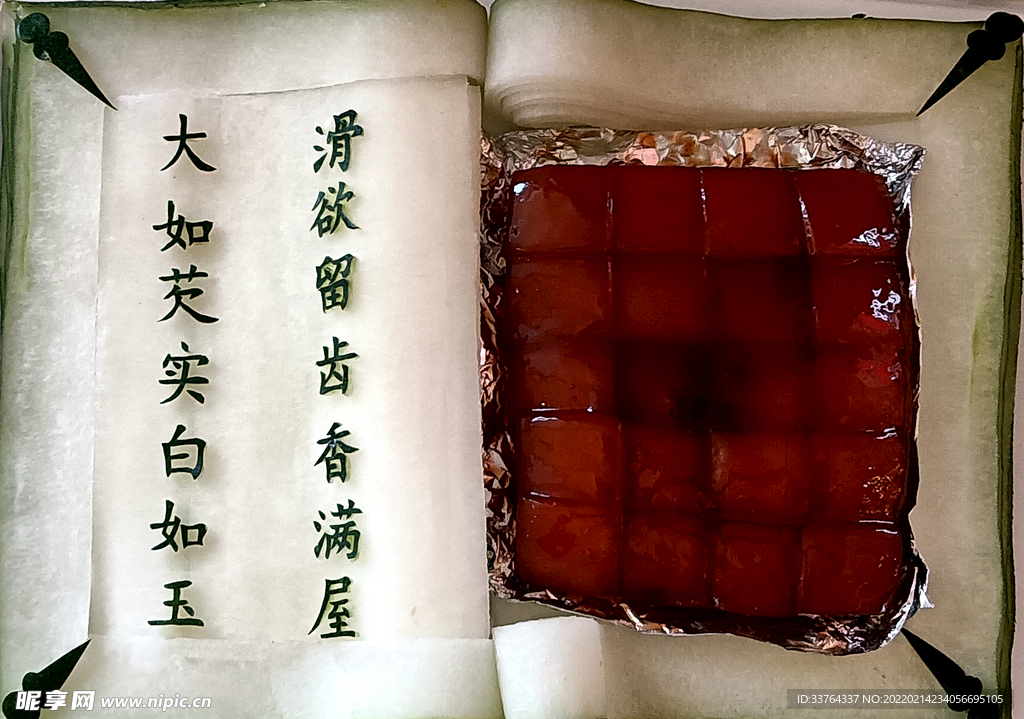 滑欲留齿香满屋
大如芡实白如玉
昵享网 www.nipic.cn
ID:33764337 NO:20220214234056695105